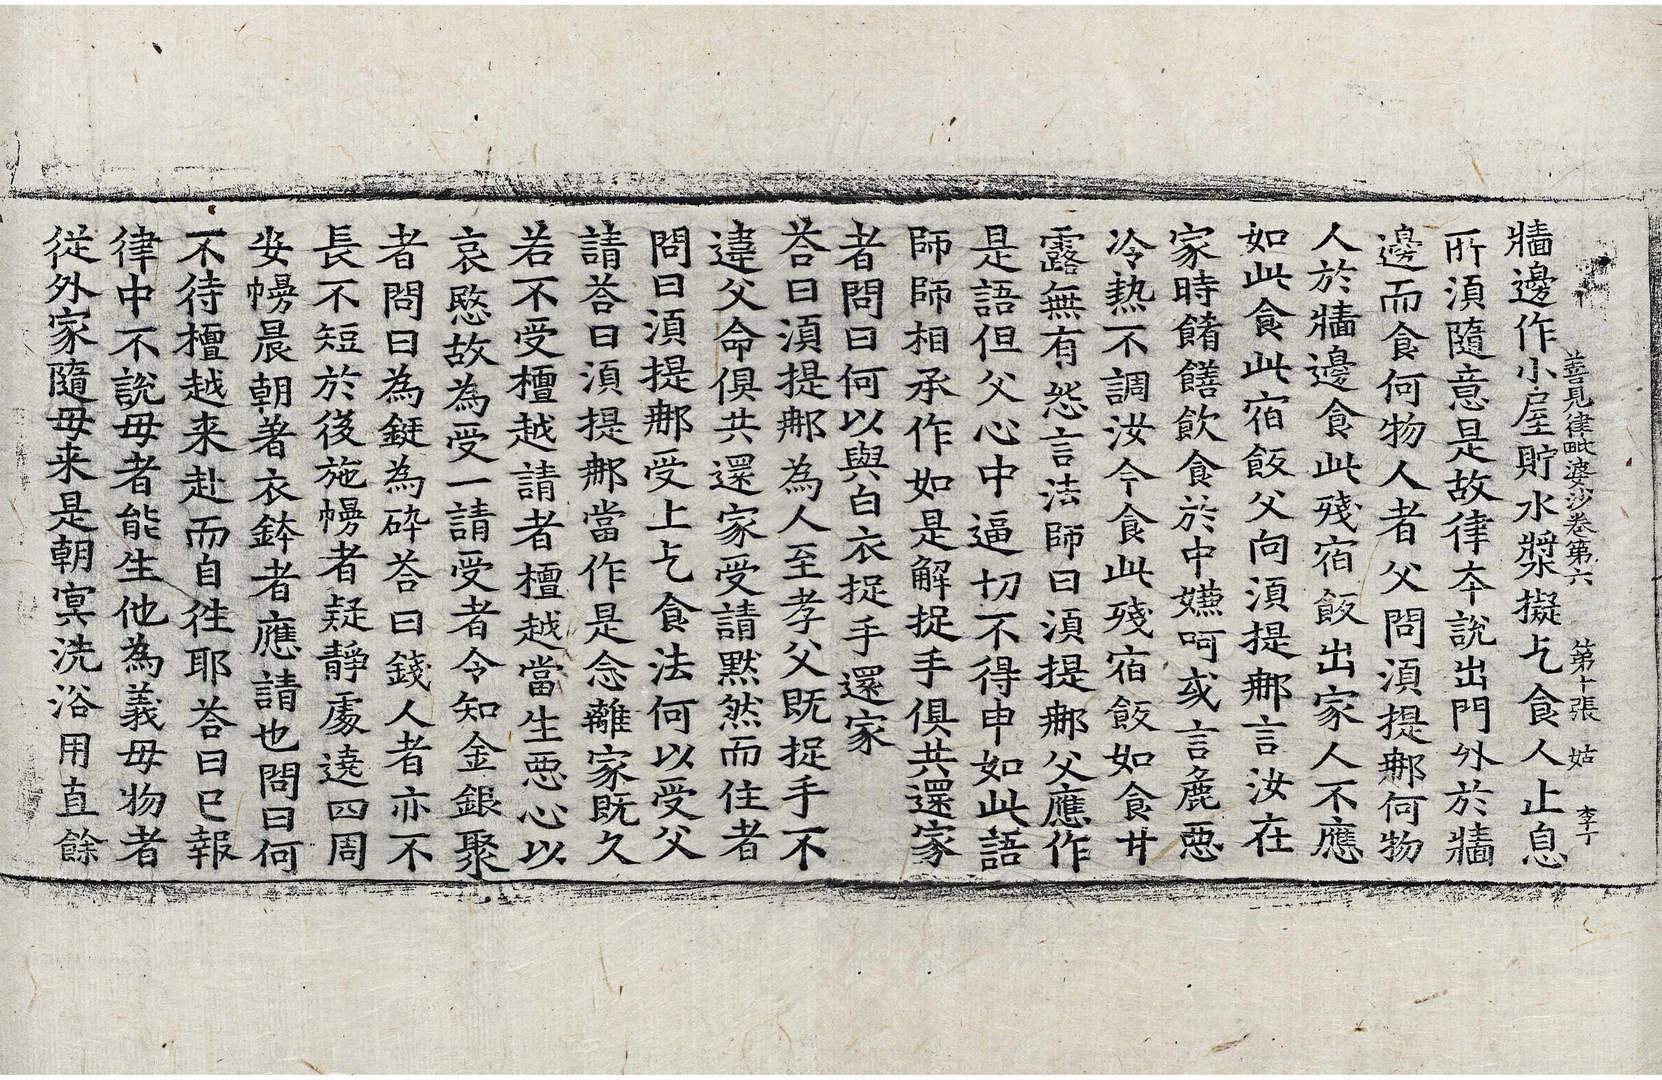 善見律毗婆沙卷第六 第十張 姑 李丁
牆邊作小屋貯水漿擬乞食人止息
所湏隨意是故律夲說出門外於牆
邊而食何物人者父問湏提𨚗何物
人於牆邊食此殘宿飯出家人不應
如此食此宿飯父向湏提𨚗言汝在
家時餚饍飲食於中嫌呵或言麁惡
冷熱不調汝今食此殘宿飯如食甘
露無有怨言法師曰湏提𨚗父應作
是語但父心中逼切不得申如此語
師師相承作如是解捉手俱共還家
者問曰何以與白衣捉手還家
荅曰湏提𨚗為人至孝父既捉手不
違父命俱共還家受請默然而住者
問曰湏提𨚗受上乞食法何以受父
請荅曰湏提𨚗當作是念離家既久
若不受檀越請者檀越當生惡心以
哀愍故為受一請受者令知金銀聚
者問曰為鋌為碎荅曰錢人者亦不
長不短於後施幔者疑靜處遶四周
安幔晨朝著衣鉢者應請也問曰何
不待檀越来赴而自徃耶荅曰已報
律中不說毋者能生他為義毋物者
從外家隨毋来是朝㝠洗浴用直餘